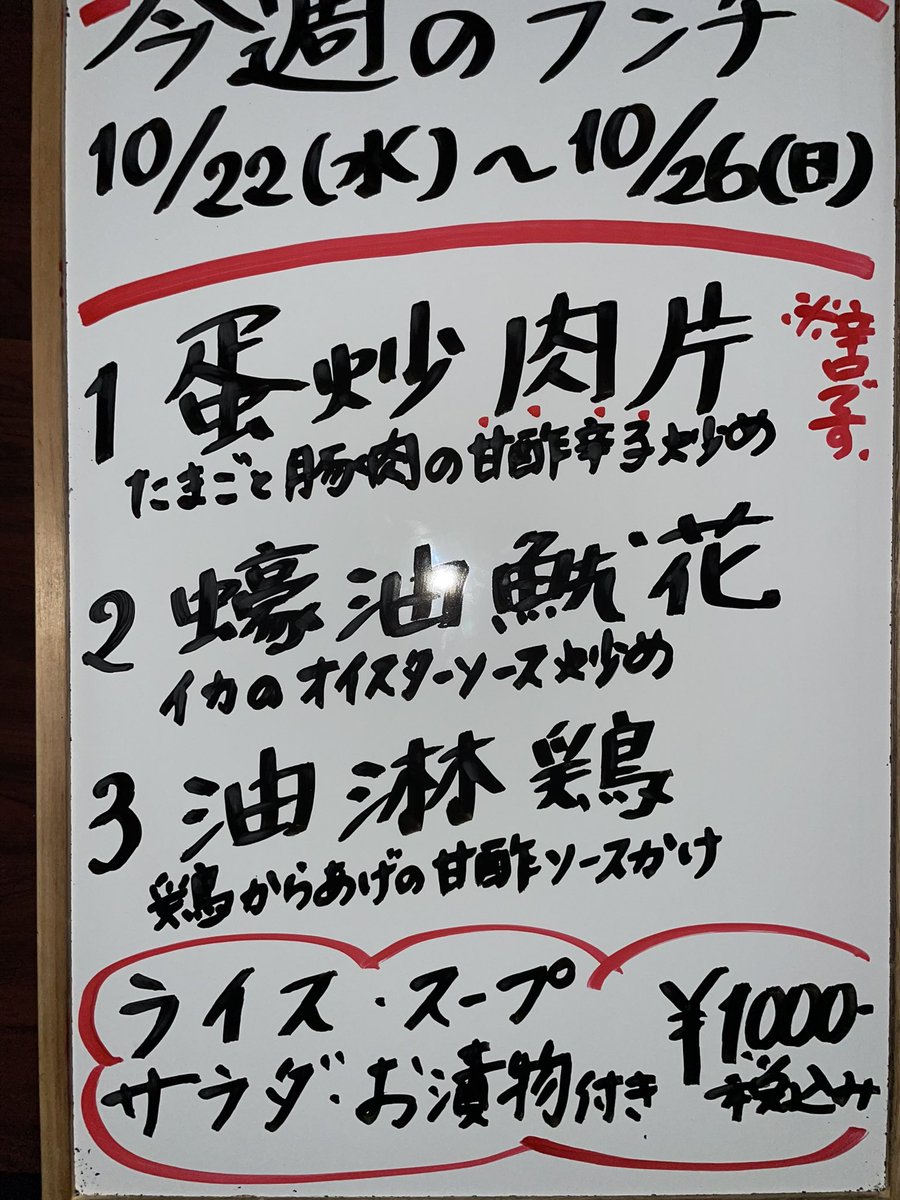 今週のランチ
10/22(水)〜10/26(日)
1 蛋炒肉片
※辛口です。
たまごと豚肉の甘酢辛子炒め
2 蠔油魷花
イカのオイスターソース炒め
3 油淋鶏
鶏からあげの甘酢ソースかけ
ライス・スープ
サラダ・お漬物付き
¥1000-
税込み